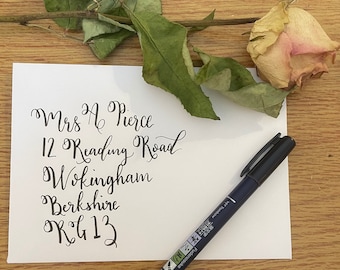 Mrs A Pierce
12 Reading Road
Wokingham
Berkshire
RG13